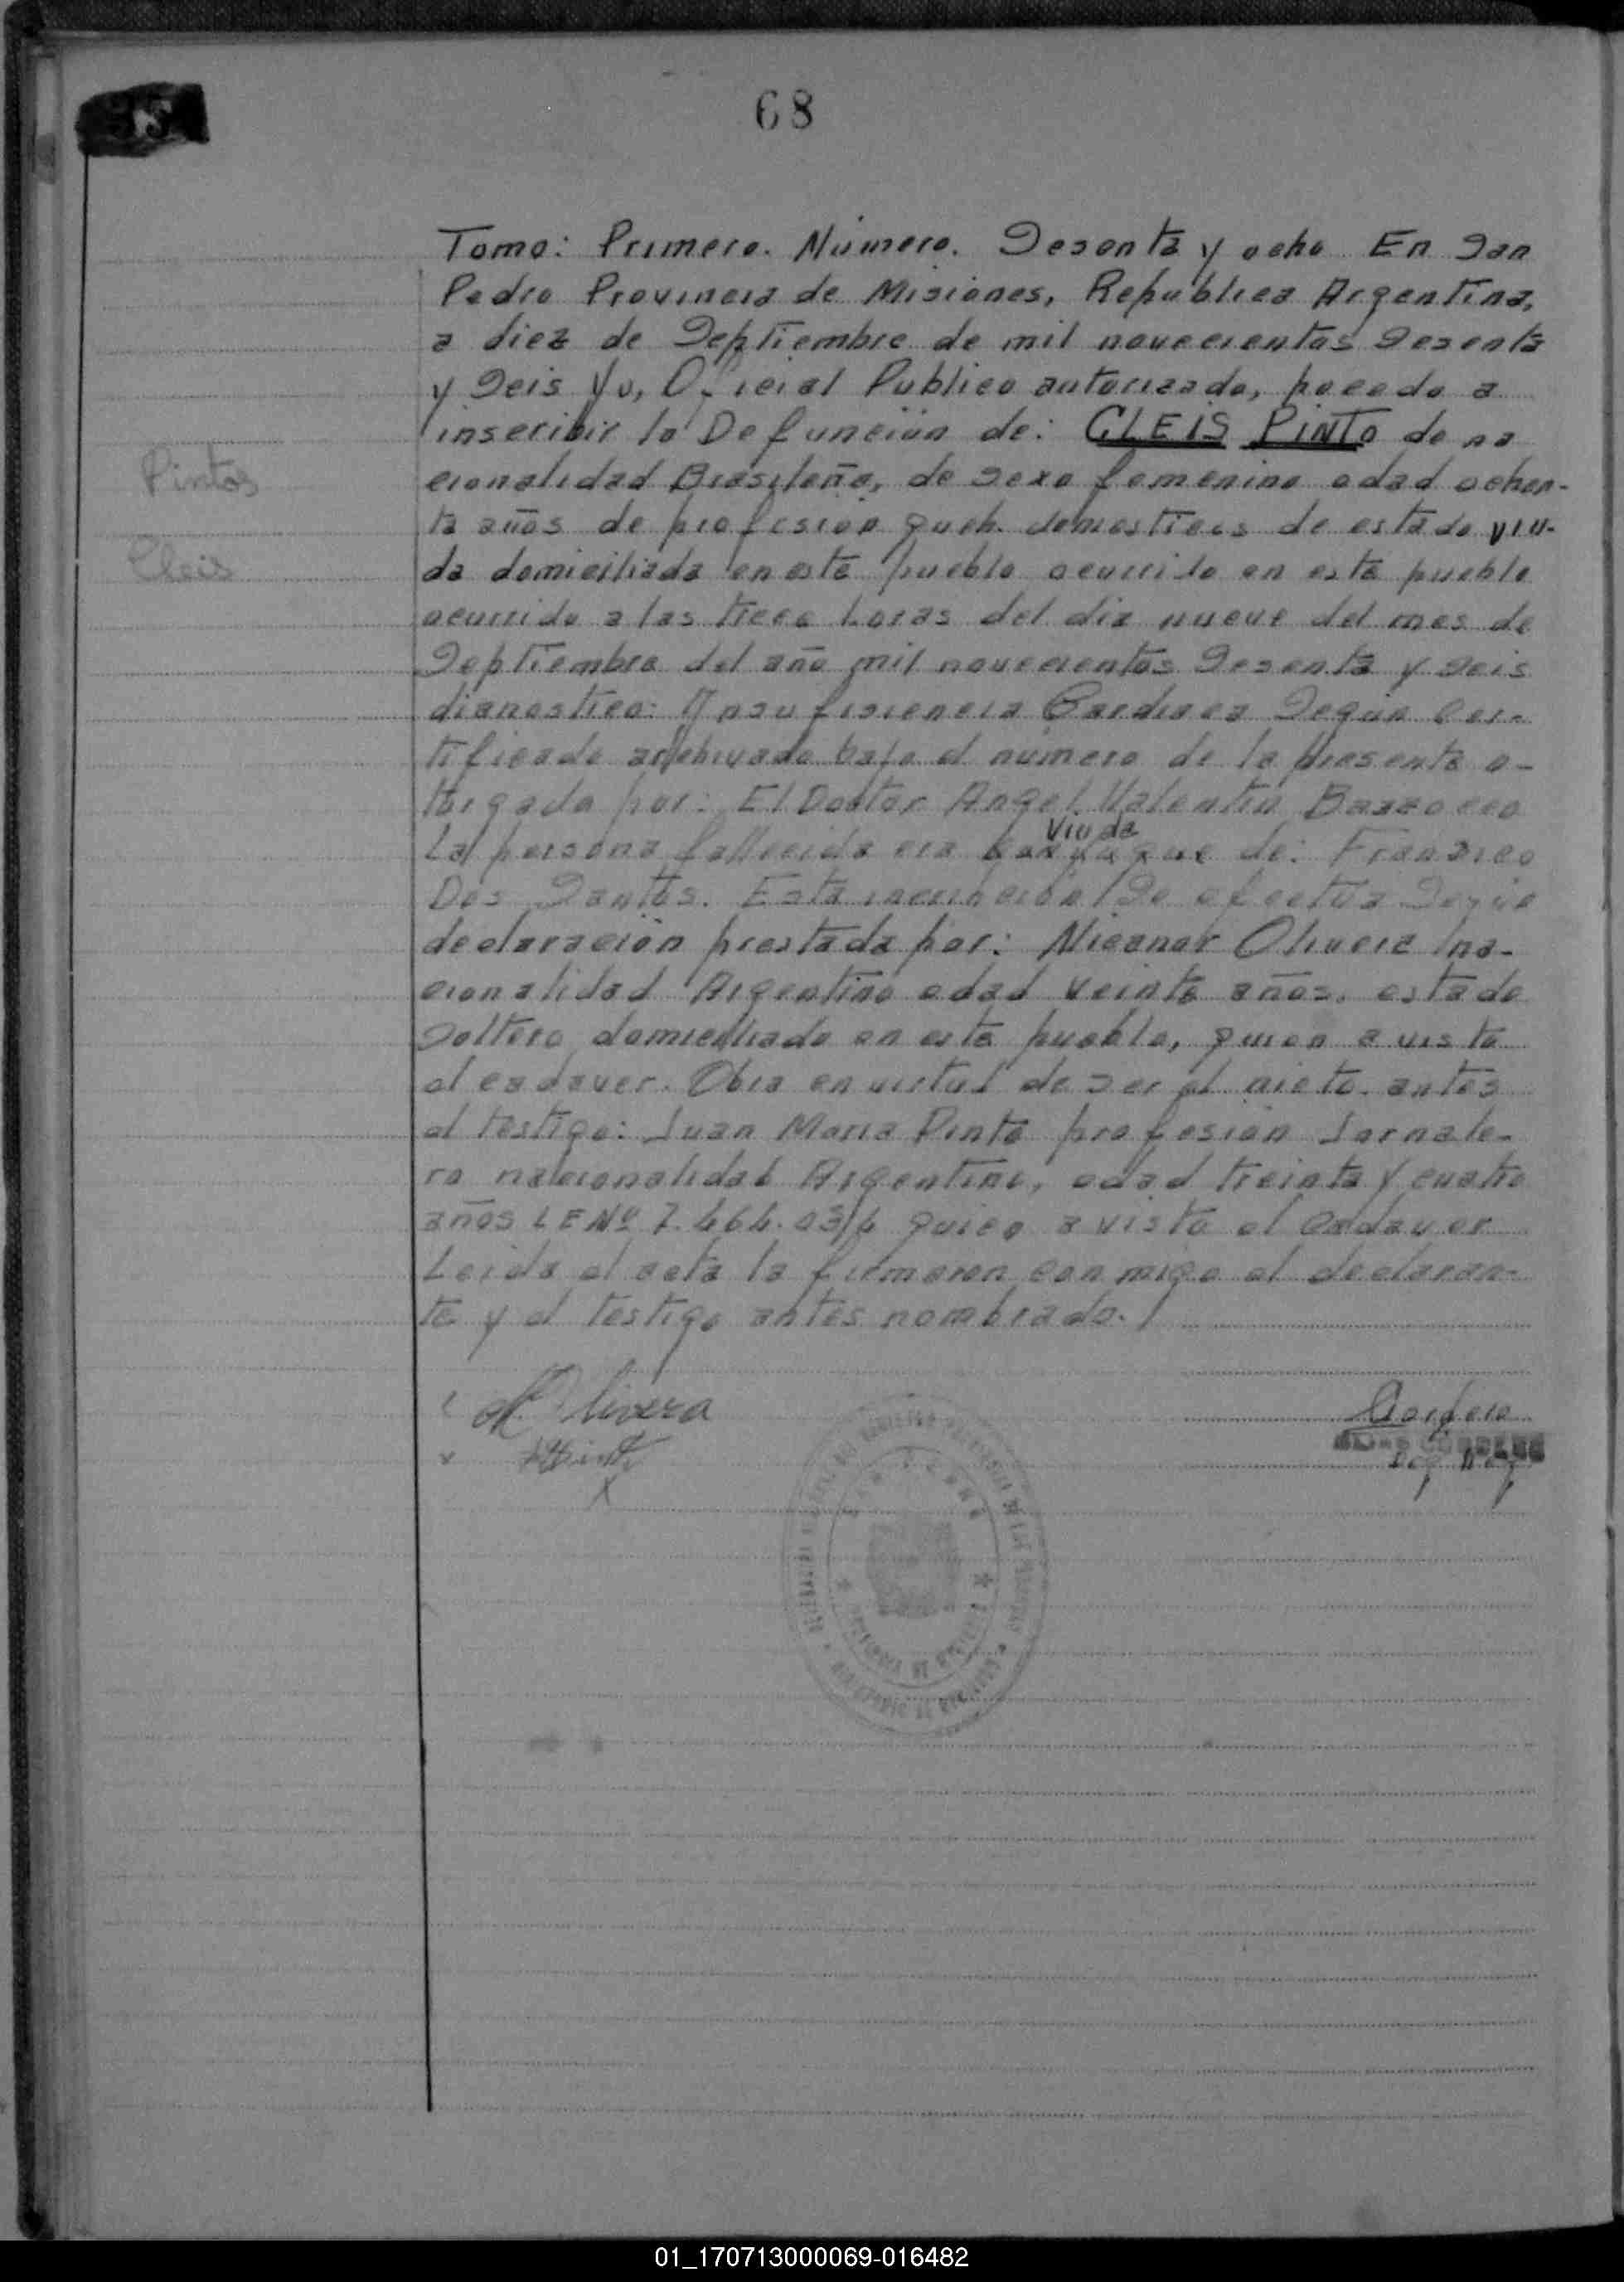 68
Tomo: Primero. Número. Sesenta y ocho En San
Pedro Provincia de Misiones, Republica Argentina,
a diez de Septiembre de mil novecientos Sesenta
y Seis Yo, Oficial Publico autorizado, pocedo a
inscribir la Defunción de: CLEIS PINTO de na
Pintos
cionalidad Brasileña, de sexo femenino edad ochen-
ta años de profesion queh. domesticos de estado viu-
Cleis
da domiciliada en este pueblo ocurrido en este pueblo
ocurrido a las trece horas del dia nueve del mes de
Septiembre del año mil novecientos Sesenta y Seis
dianostico: Insufisiencia Cardiaca Segun Cer-
tificado archivado bajo el número de la presente o-
torgado por: El Doctor Angel Valentin
Viuda
La persona fallecida era de: Francisco
Dos Santos. Esta inscripción Se efectua Segun
declaración prestada por: Nicanor Olivera na-
cionalidad Argentino edad Veinte años, estado
Soltero domiciliado en este pueblo, quien a visto
el cadaver. Obra en virtud de ser el nieto. antes
el testigo: Juan Maria Pinto profesion Jornale-
ro nalcionalidad Argentino, edad treinta y cuatro
años LE Nº quien a visto el Cadaver
Leida el acta la firmaron con migo el declaran-
te y el testigo antes nombrado.
Olivera
01_170713000069-016482